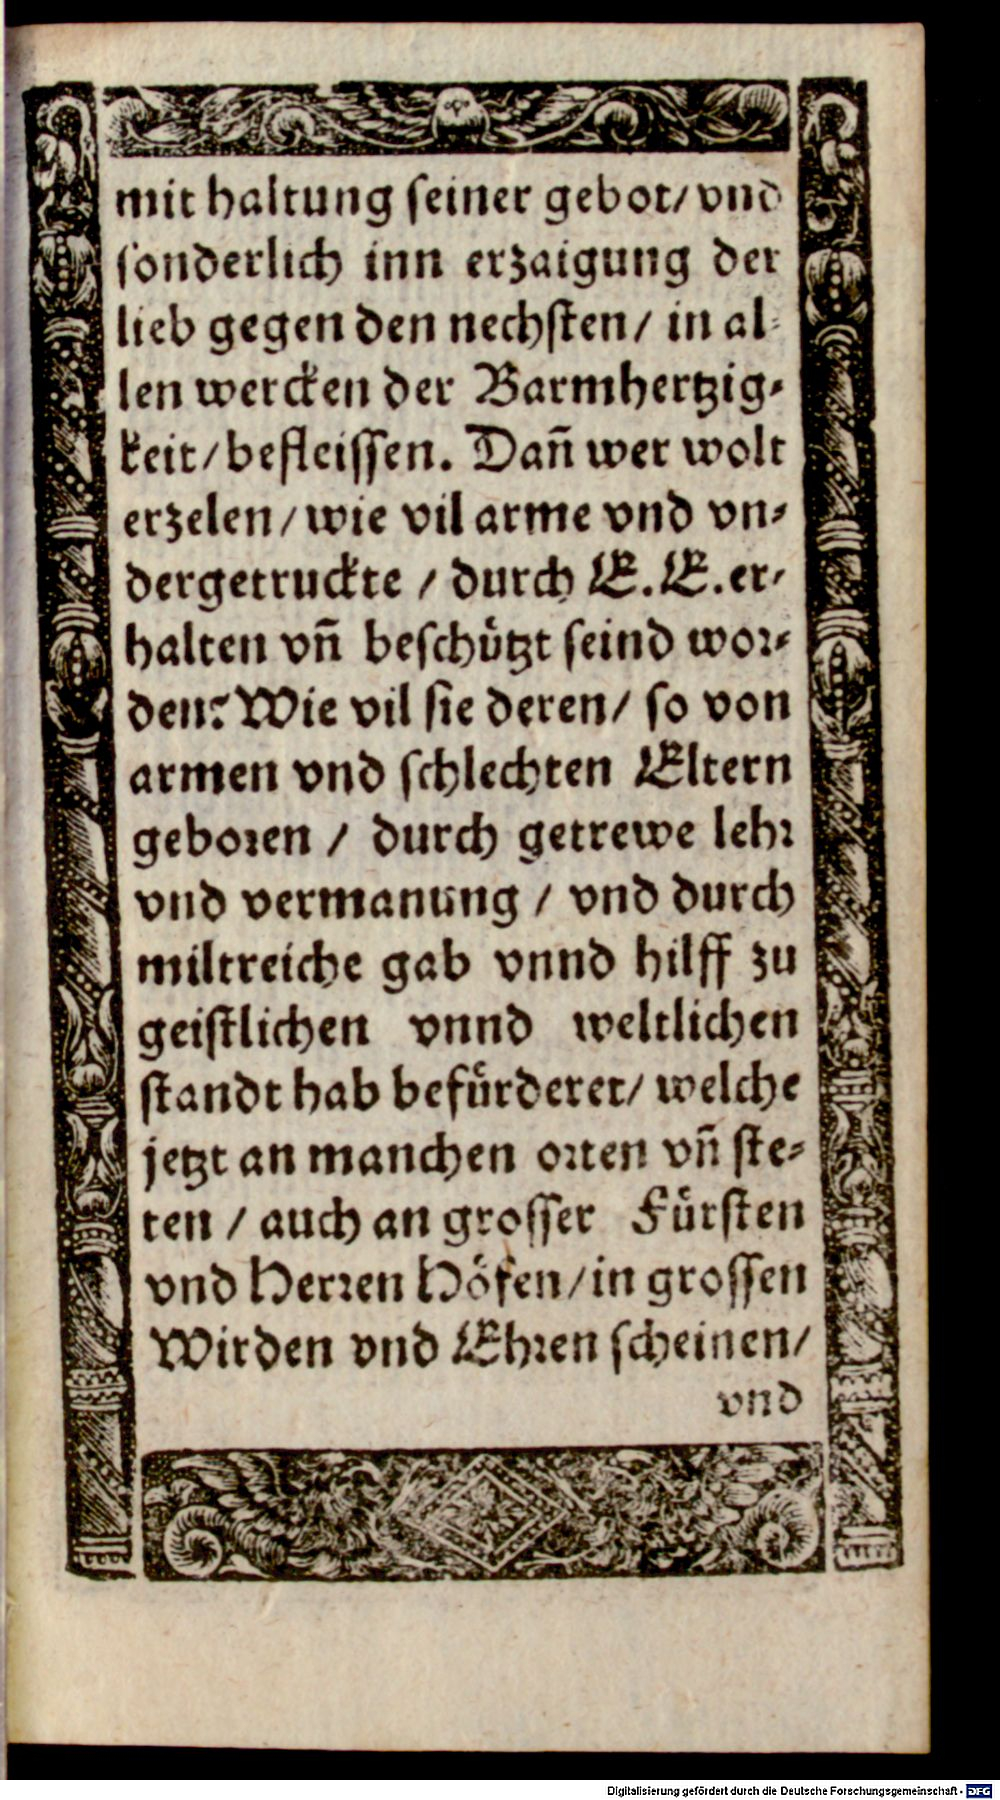 mit haltung ſeiner gebot/ vnd
ſonderlich inn erzaigung der
lieb gegen den nechſten/ in al⸗
len wercken der Barmhertzig⸗
keit/ befleiſſen. Dañ wer wolt
erzelen/ wie vil arme vnd vn⸗
dergetruckte / durch E. E. er⸗
halten vñ beſchützt ſeind wor⸗
den? Wie vil ſie deren/ ſo von
armen vnd ſchlechten Eltern
geboren / durch getrewe lehr
vnd vermanung / vnd durch
miltreiche gab vnnd hilff zu
geiſtlichen vnnd weltlichen
ſtandt hab befürderet/ welche
jetzt an manchen orten vñ ſte⸗
ten / auch an groſſer Fürſten
vnd Herren Höfen/ in groſſen
Wirden vnd Ehren ſcheinen/
vnd
Digitalisierung gefördert durch die Deutsche Forschungsgemeinschaft - DFG